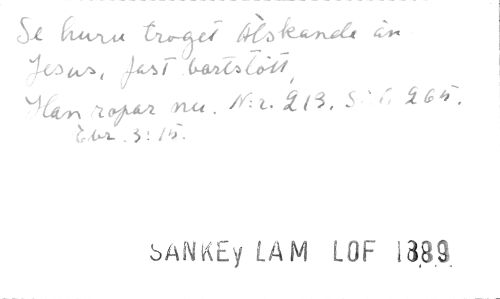 Se huru troget älskande än
Jesus, fast bortstött,
Han ropar nu. N:r. 213. S: 265.
Ebr. 3:15.
SANKEY LAM LOF 1889